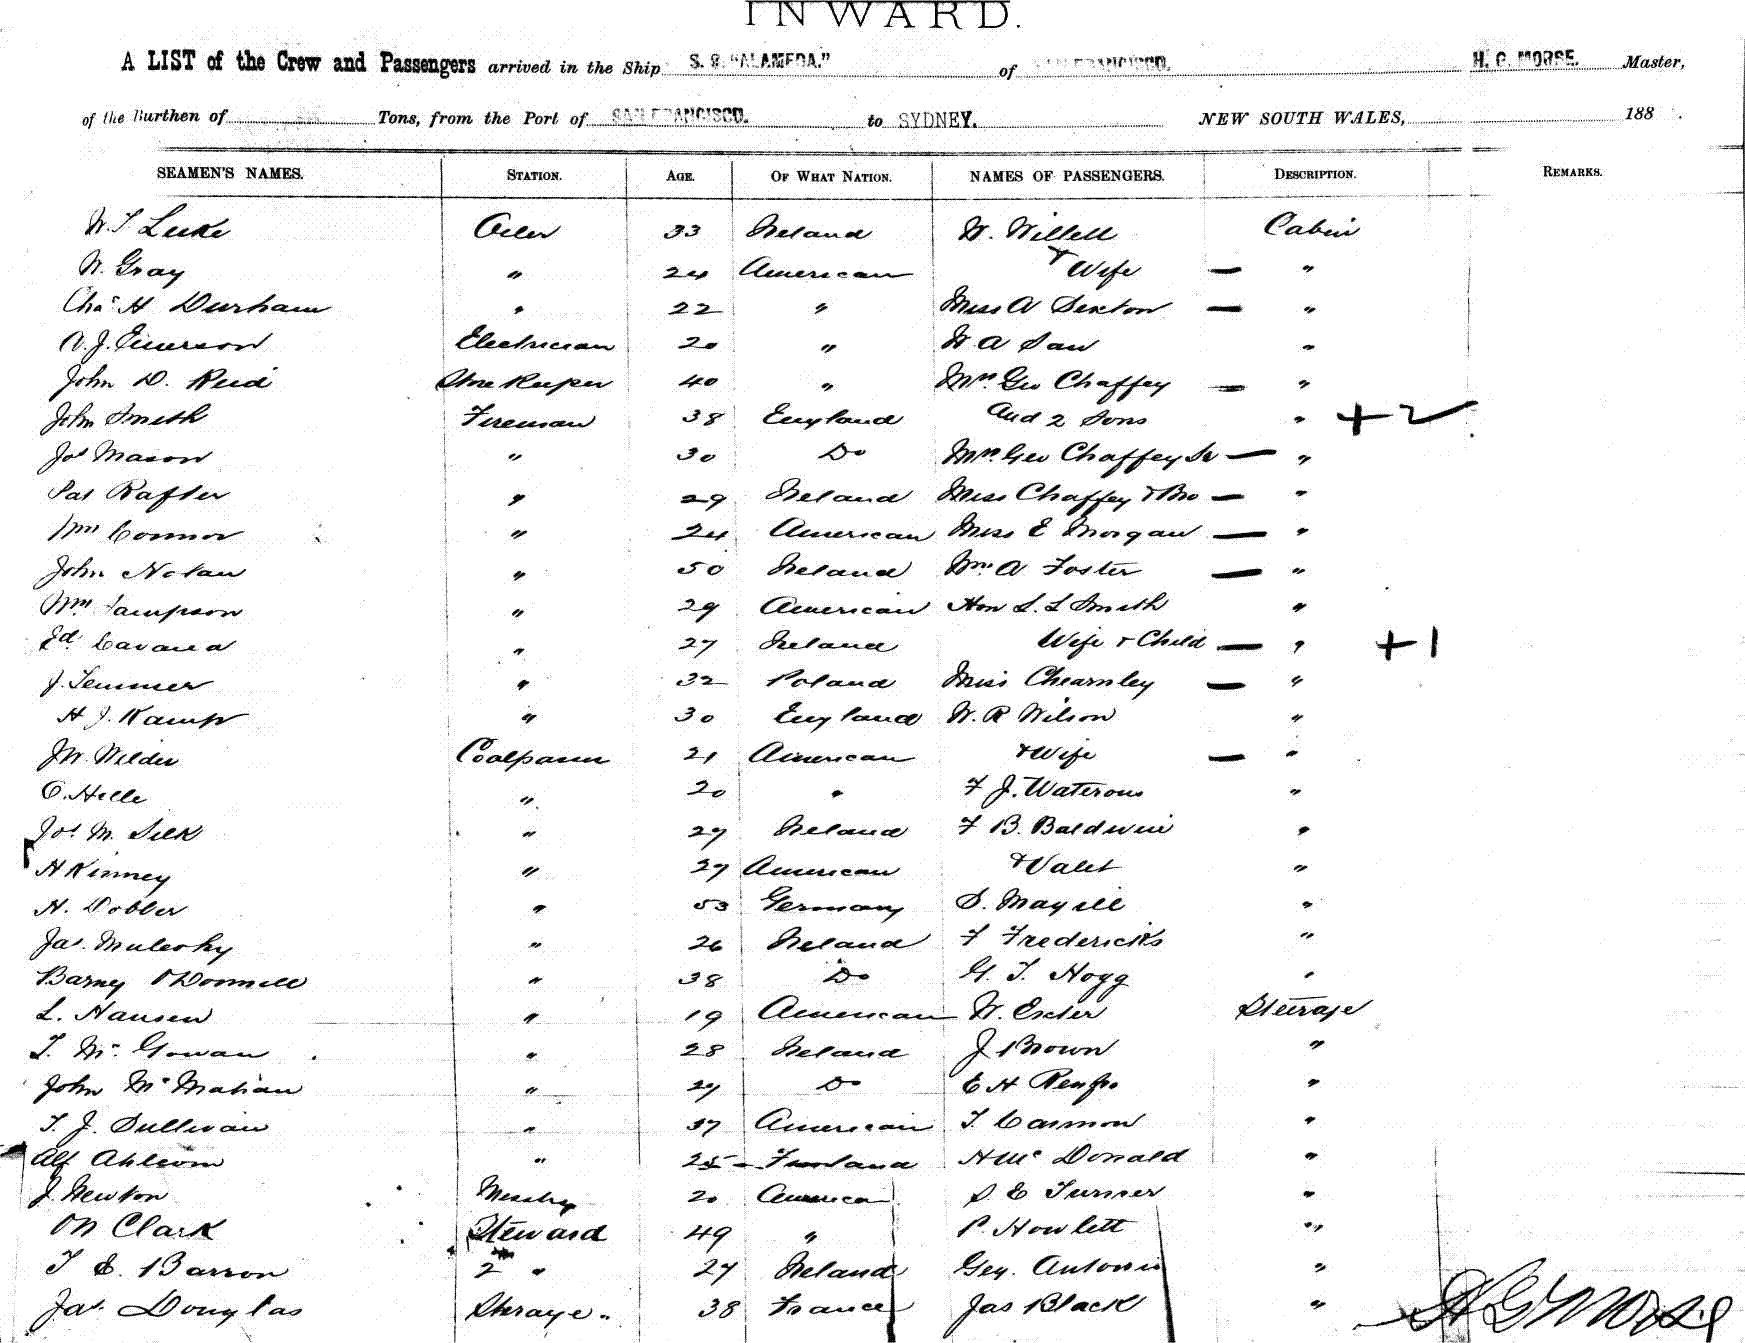 INWARD.
A LIST of the Crew and Passengers arrived in the Ship S. S. "ALAMEDA." of SAN FRANCISCO. H. G. MORSE. Master,
of the Burthen of Tons, from the Port of SAN FRANCISCO. to SYDNEY. NEW SOUTH WALES, 188 .
SEAMEN'S NAMES. STATION. AGE. OF WHAT NATION. NAMES OF PASSENGERS. DESCRIPTION. REMARKS.
W. T Luke Oiler 33 Ireland W. Willell Cabin
W. Gray " 24 American + Wife — "
Chas H Durham " 22 " Miss A Sexton — "
A. J. Emerson Electrician 20 " W A Saw "
John D. Reid Storekeeper 40 " Mrs Geo Chaffey — "
John Smith Fireman 38 England and 2 Sons " + 2
Jos Mason " 30 Do Mrs Geo Chaffey Sr — "
Pat Rafter " 29 Ireland Miss Chaffey + Bro — "
Wm Connor " 24 American Miss E Morgan — "
John Nolan " 50 Ireland Mrs A Foster — "
Wm Sampson " 29 American Hon S. L Smith "
Ed Cavana " 27 Ireland Wife + Child — " + 1
J. Temmer " 32 Poland Miss Chearnley — "
H J. Kamp " 30 England W. R Wilson "
J W. Wilder Coalpasser 21 American + Wife — "
O. Helle " 20 " F J. Waterous "
Jos M. Silk " 27 Ireland F B. Baldwin "
H Kinney " 27 American + Valet "
H. Dobler " 53 Germany S. Magill "
Jas. Mulcahy " 26 Ireland F Fredericks "
Barney O'Donnell " 38 Do G. T. Hogg "
L. Hansen " 19 American W. Escher Steerage
T. Mc Gowan " 28 Ireland J Brown "
John Mc Mahan " 29 Do E H Renfro "
T. J. Sullivan " 37 American T Cannon "
Alf Ahlcom " 25 Finland H Mc Donald "
J. Newton Messboy 20 America S E Turner "
Clark Steward 49 " P. Howlett "
T E. Barron 2 " 27 Ireland Geo. Antonio "
Jas. Douglas Steerage " 38 France Jas Black "
H G Morse